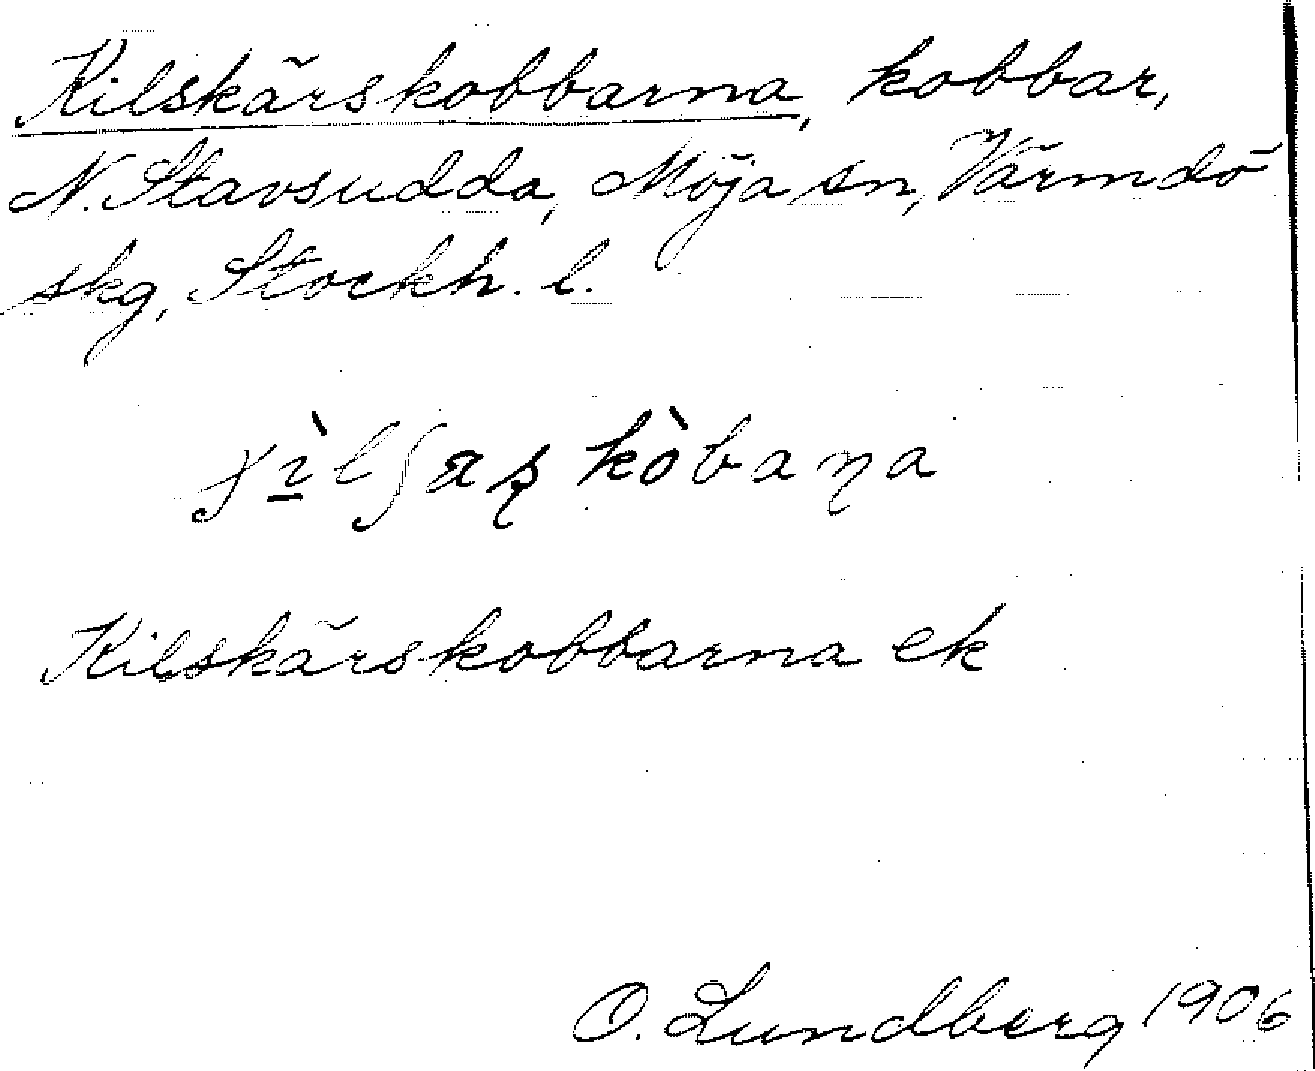 Kilskärskobbarna, kobbar,
N. Stavsudda, Möja sn, Värmdö
skg, Stockh. l.
Kilskärskobbarna ek
O. Lundberg 1906